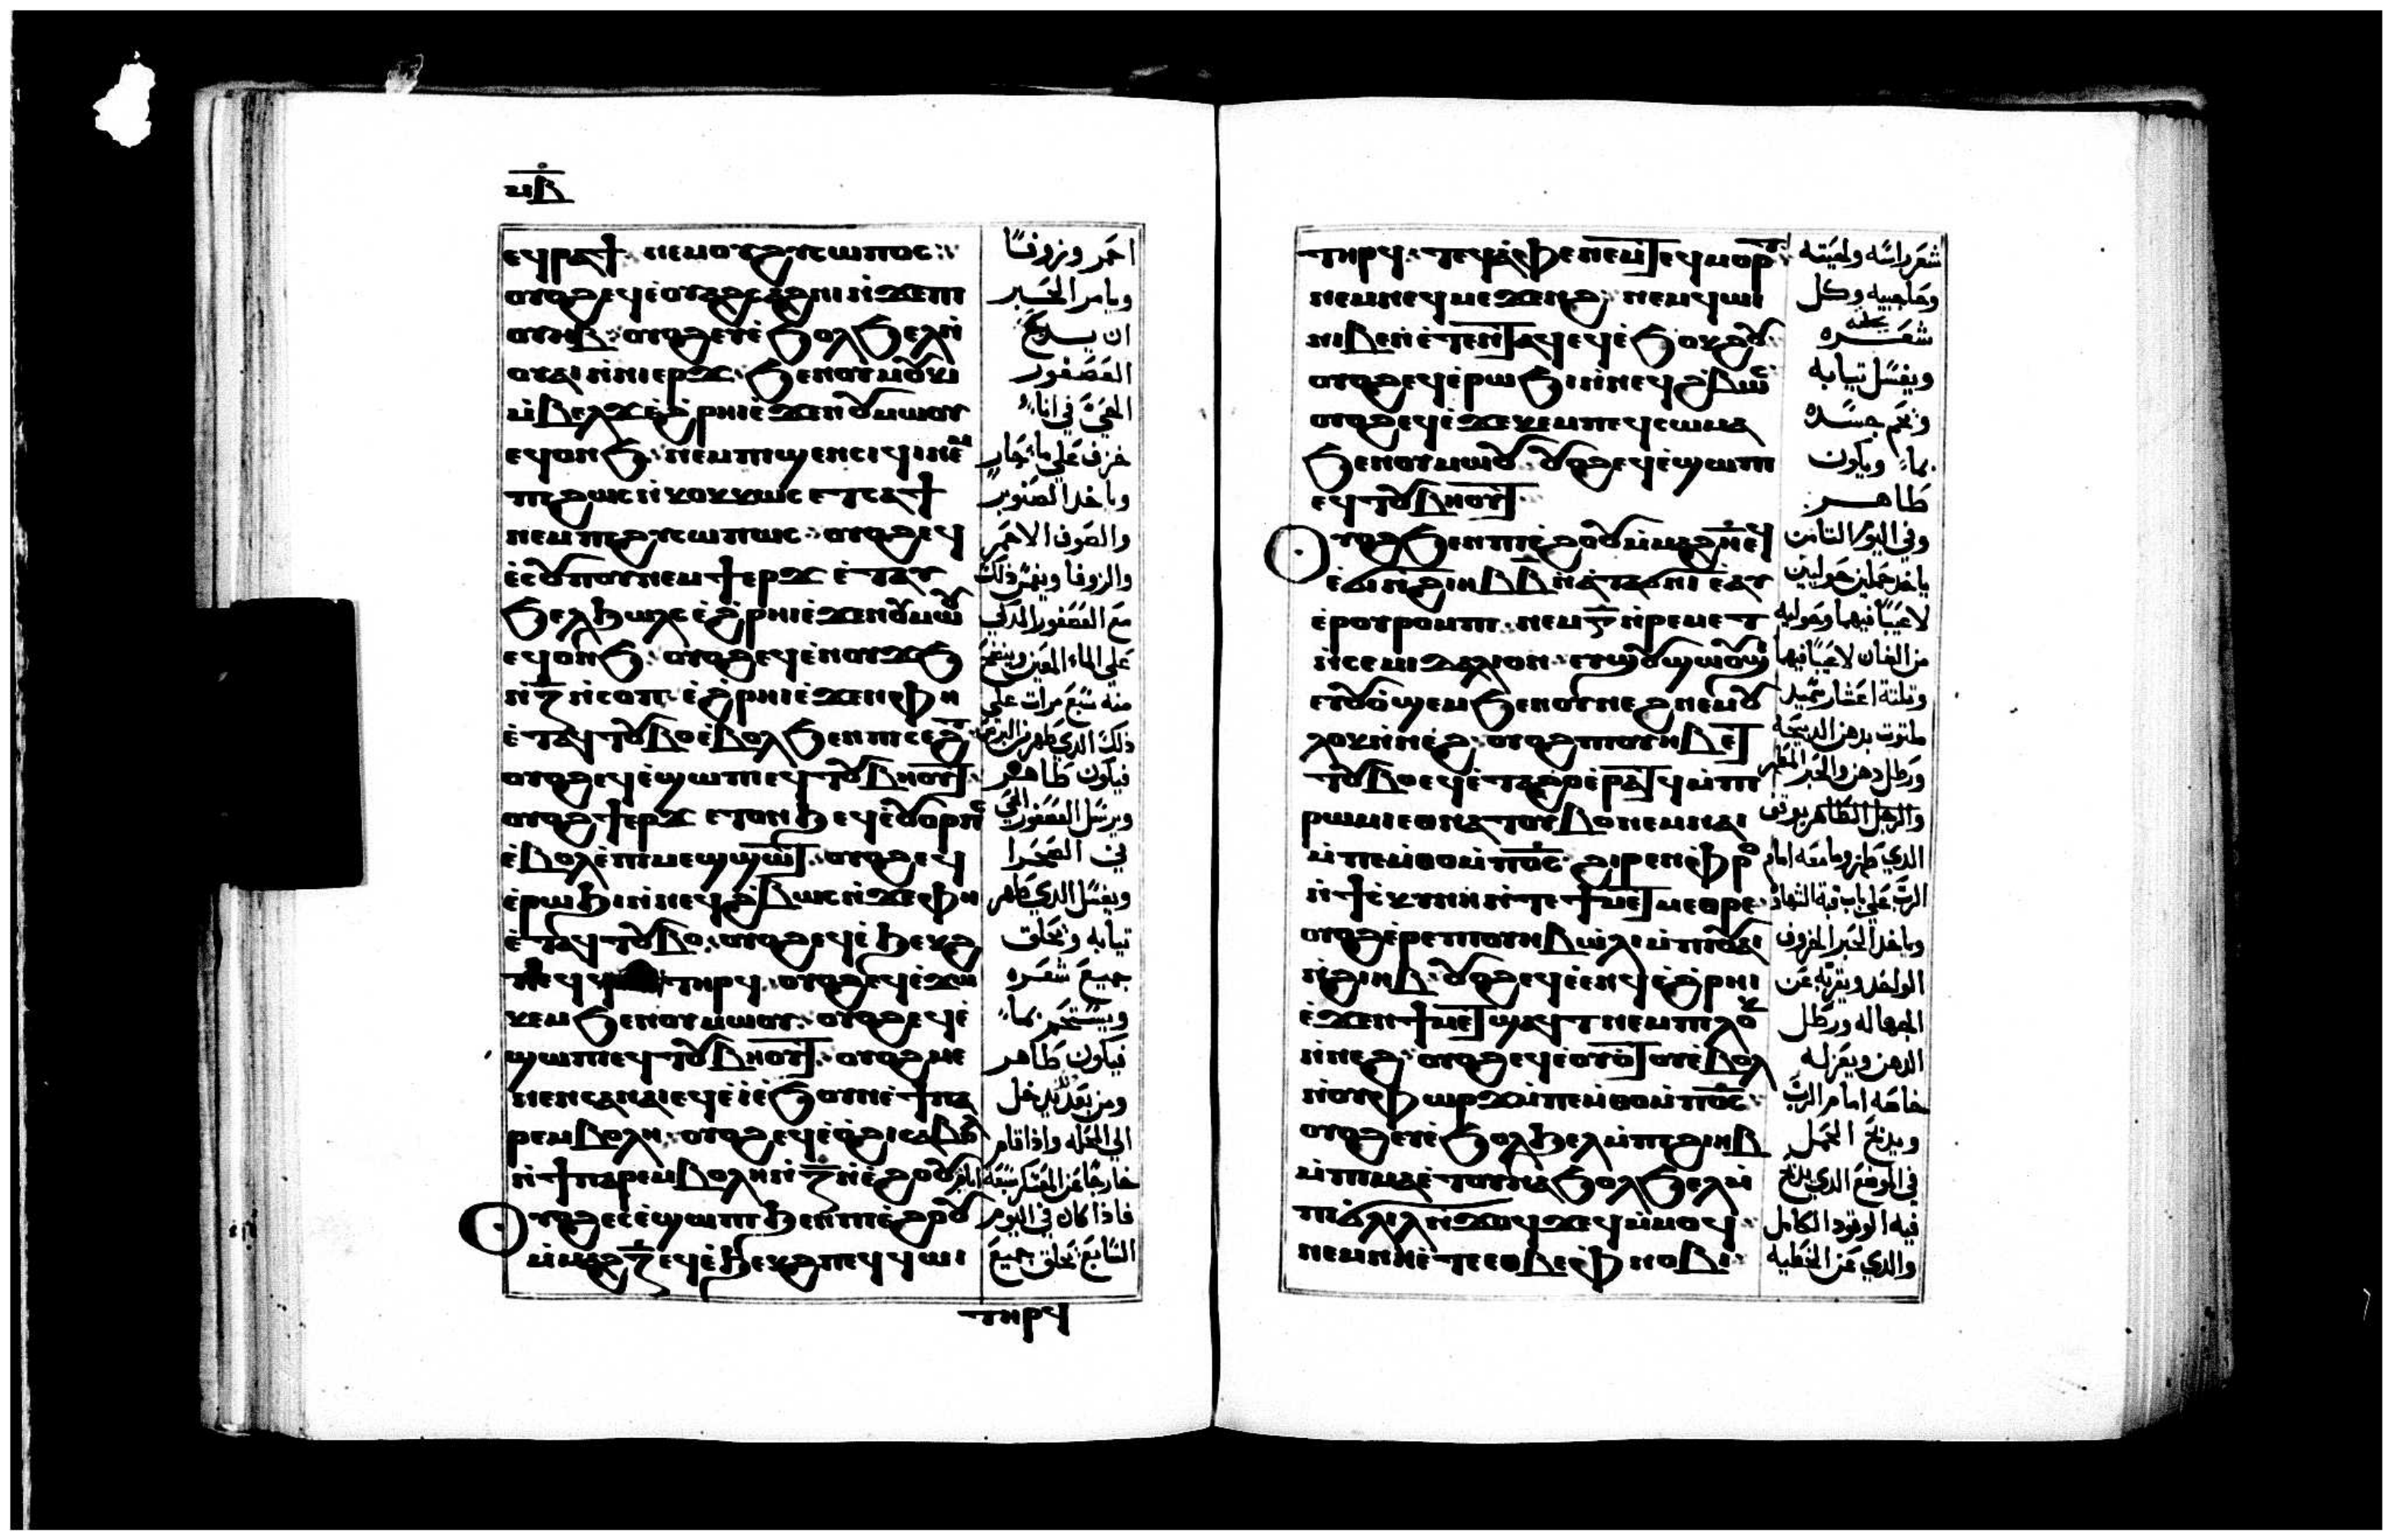 ⲙⲃ
ⲉϥⲣⲁϯ ⲛⲉⲙ ⲟⲩϩⲩⲥⲱⲡⲟⲥ
ⲟⲩⲟϩ ⲉϥⲉ̀ⲟⲩⲁϩⲥⲁϩⲛⲓ ⲛ̀ϫⲉ ⲡⲓ
ⲟⲩⲏⲃ ⲟⲩⲟϩ ⲉⲩⲉ̀ϧⲟⲗϧⲉⲗ ⲛ̀
ⲟⲩⲁⲓ ⲛ̀ⲛⲓⲉⲣϫ ϧⲉⲛ ⲟⲩⲙⲟⲕⲓ
ⲙ̀ⲃⲉⲗϫ ⲉ̀ϩⲣⲏⲓ ⲉ̀ϫⲉⲛ ⲟⲩⲙⲱⲟⲩ
ⲉϥⲟⲛϧ ⲛⲉⲙ ⲡⲓϣⲉⲛⲥⲓϥⲓ ⲛⲉⲙ
ⲡϩⲱⲥ ⲛ̀ⲕⲟⲕⲕⲱⲥ ⲉⲧⲥⲁϯ
ⲛⲉⲙ ⲡϩⲩⲥⲱⲡⲱⲥ ⲟⲩⲟϩ ⲉϥ
ⲉ̀ⲥⲟⲩⲡⲟⲩ ⲛⲉⲙ ϯⲉⲣϫ ⲉ̀ⲧⲁⲩ
ϧⲉⲗϧⲱⲗⲥ ⲉ̀ϩⲣⲏⲓ ⲉ̀ϫⲉⲛ ⲟⲩⲙⲱⲟⲩ
ⲉϥⲟⲛϧ ⲟⲩⲟϩ ⲉϥⲉ̀ⲛⲟⲩϫϧ
ⲛ̀ⲍ̄ ⲛ̀ⲥⲟⲡ ⲉ̀ϩⲣⲏⲓ ⲉ̀ϫⲉⲛ ⲫⲏ
ⲉ̀ⲧⲁϥⲧⲟⲩⲃⲟ ⲉ̀ⲃⲟⲗ ϧⲉⲛ ⲡⲓⲥⲉϩⲧ
ⲟⲩⲟϩ ⲉϥⲉ̀ϣⲱⲡⲓ ⲉϥⲧⲟⲩⲃⲏⲟⲩⲧ
ⲟⲩⲟϩ ϯⲉⲣϫ ⲉⲧⲟⲛϧ ⲉϥⲉ̀ⲟⲩⲟⲣⲡⲥ
ⲉ̀ⲃⲟⲗ ⲉ̀ⲡⲓⲙⲉϣϣⲱⲧ ⲟⲩⲟϩ ⲉϥ
ⲉ̀ⲣⲱϧⲓ ⲛ̀ⲛⲉϥϩ̀ⲃⲱⲥ ⲛ̀ϫⲉ ⲫⲏ
ⲉ̀ⲧⲁϥⲧⲟⲩⲃⲟ ⲟⲩⲟϩ ⲉϥⲉ̀ϧⲉⲕϩ
ⲧⲏⲣϥ ⲟⲩⲟϩ ⲉϥⲉ̀ϫⲱ
ⲕⲉⲙ ϧⲉⲛ ⲟⲩⲙⲱⲟⲩ ⲟⲩⲟϩ ⲉϥⲉ̀
ϣⲱⲡⲓ ⲉϥⲧⲟⲩⲃⲏⲟⲩⲧ ⲟⲩⲟϩ ⲙⲉ
ⲛⲉⲛⲥⲁ ⲛⲁⲓ ⲉϥⲉ̀ⲓ̀ ⲉ̀ϧⲟⲩⲛ ⲉ̀ϯⲡⲁ
ⲣⲉⲙⲃⲟⲗⲏ ⲟⲩⲟϩ ⲉϥⲉ̀ⲟ̀ϩⲓ ⲥⲁⲃⲟⲗ
ⲛ̀ϯⲡⲁⲣⲉⲙⲃⲟⲗⲏ ⲛ̀ⲍ̄ ⲛ̀ⲉ̀ϩⲟⲟⲩ
ⲟⲩⲟϩ ⲉⲥⲉ̀ϣⲱⲡⲓ ϧⲉⲛ ⲡⲓⲉ̀ϩⲟⲟⲩ
ⲙ̀ⲙⲁϩⲍ̄ ⲉϥⲉ̀ϧⲉⲕϩ ⲡⲉϥϥⲱⲓ
ⲧⲏⲣϥ
احمر وزوفا
ويامر الحبر
ان يدبح
العصفور
الحي في اناء
خزف علي ماء جار
وياخد الصنوبر
والصوف الاحمر
والزوفا ويغمس ذلك
مع العصفور المذكي
علي الماء المعين وينضح
منه سبع مرات علي
ذلك الدي طهر من البرص
فيكون طاهر
ويرسل العصفور الحي
في الصحرا
ويغسل الدي طهر
تيابه ويحلق
جميع شعره
ويستحم بماء
فيكون طاهر
ومن بعد ذلك يدخل
الي المحله واذا قام
خارجا عن المعسكر سبعه ايام
فاذا كان في اليوم
السابع يحلق جميع
ⲧⲏⲣϥ ⲧⲉϥⲁ̀ⲫⲉ ⲛⲉⲙ ⲧⲉϥⲙⲟⲣⲧ
ⲛⲉⲙ ⲛⲉϥⲙⲉϫⲉⲛϩ ⲛⲉⲙ ϥⲱⲓ
ⲛⲓⲃⲉⲛ ⲉ̀ⲧⲉⲛⲧⲁϥ ⲉϥⲉ̀ϧⲟⲕϩⲟⲩ
ⲟⲩⲟϩ ⲉϥⲉ̀ⲣⲱϧⲓ ⲛ̀ⲛⲉϥϩ̀ⲃⲱⲥ
ⲟⲩⲟϩ ⲉϥⲉ̀ϫⲉⲕⲉⲙ ⲡⲉϥⲥⲱⲙⲁ
ϧⲉⲛ ⲟⲩⲙⲱⲟⲩ ⲟⲩⲟϩ ⲉϥⲉ̀ϣⲱⲡⲓ
ⲉϥⲧⲟⲩⲃⲏⲟⲩⲧ
ⲟⲩⲟϩ ϧⲉⲛ ⲡⲓⲉ̀ϩⲟⲟⲩ ⲙ̀ⲙⲁϩⲏ̄ ⲉϥ
ⲉ̀ϭⲓ ⲛ̀ϩⲓⲏⲃ ⲃ̄ ⲛ̀ⲁ̀ⲧⲁϭⲛⲓ ⲉ̀ⲁⲩ
ⲉ̀ⲣⲟⲩⲣⲟⲙⲡⲓ ⲛⲉⲙ ⲅ̄ ⲛ̀ⲣⲉⲙⲉⲧ
ⲛ̀ⲥⲉⲙⲓⲇⲁⲗⲓⲟⲛ ⲉⲩϣⲟⲩϣⲱⲟⲩϣⲓ
ⲉⲩⲟⲩⲟϣⲉⲙ ϧⲉⲛ ⲟⲩⲛⲉϩ ⲛⲉⲙ ⲟⲩ
ⲗⲟⲕ ⲛ̀ⲛⲉϩ ⲟⲩⲟϩ ⲡⲓⲟⲩⲏⲃ ⲉⲧ
ⲧⲟⲩⲃⲟ ⲉϥⲉ̀ⲧⲁϩⲟ ⲉ̀ⲣⲁⲧϥ ⲙ̀ⲡⲓ
ⲣⲱⲙⲓ ⲉⲑⲛⲁⲧⲟⲩⲃⲟ ⲛⲉⲙ ⲛⲁⲓ
ⲙ̀ⲡⲉⲙ̀ⲑⲟ ⲙ̀ⲡ̄ⲟ̄ⲥ̄ ϩⲓⲣⲉⲛ ⲫⲣⲟ
ⲛ̀ϯⲥ̀ⲕⲩⲛⲏ ⲛ̀ⲧⲉ ϯⲙⲉⲧⲙⲉⲑⲣⲉ
ⲟⲩⲟϩ ⲉ̀ⲣⲉ ⲡⲓⲟⲩⲏⲃ ⲱ̀ⲗⲓ ⲙ̀ⲡⲓⲟⲩⲁⲓ
ⲛ̀ϩⲓⲏⲃ ⲟⲩⲟϩ ⲉϥⲉ̀ⲉⲛϥ ⲉ̀ϩⲣⲏⲓ
ⲉ̀ϫⲉⲛ ϯⲙⲉⲧϣⲁϥⲧ ⲛⲉⲙ ⲡⲓⲗⲟⲕ
ⲛ̀ⲛⲉϩ ⲟⲩⲟϩ ⲉϥⲉⲟⲩⲟⲧⲟⲩ ⲉ̀ⲃⲟⲗ
ⲛ̀ⲟⲩⲫⲱⲣϫ ⲙ̀ⲡⲉⲙ̀ⲑⲟ ⲙ̀ⲡ̄ⲟ̄ⲥ̄
ⲟⲩⲟϩ ⲉⲩⲉ̀ϧⲟⲗϧⲉⲗ ⲙ̀ⲡⲓϩⲓⲏⲃ
ⲙ̀ⲡⲓⲙⲁ ⲉ̀ⲧⲟⲩⲛⲁϧⲟⲗϧⲉⲗ ⲙ̀
ⲡⲓϭⲗⲓⲗ ⲛ̀ϫⲱϥϫⲉϥ ⲙ̀ⲙⲟϥ
ⲛⲉⲙ ⲡⲏ ⲉ̀ⲧⲉ ⲉⲑⲃⲉ ⲫⲛⲟⲃⲓ
شعر راسه ولحيته
وحاجبيه وكل
شعره يحلقه
ويغسل تيابه
ويحم جسده
بماء ويكون
طاهر
وفي اليوم التامن
ياخد حملين حوليين
لا عيبا فيهما وحوليه
من الضان لا عيبا فيها
وتلتة اعشار سميد
ملتوت بدهن الدبيحه
ورطل دهن والحبر المطهر
والرجل الطاهر يوقف
الدي طهر وما معه امام
الرب علي باب قبة الشهاده
وياخد الحبر الخروف
الواحد ويقربه عن
الجهاله ورطل
الدهن ويعزله
خاصه امام الرب
ويدبح الحمل
في الموضع الدي يدبح
فيه الوقود الكامل
والدي عن الخطيه